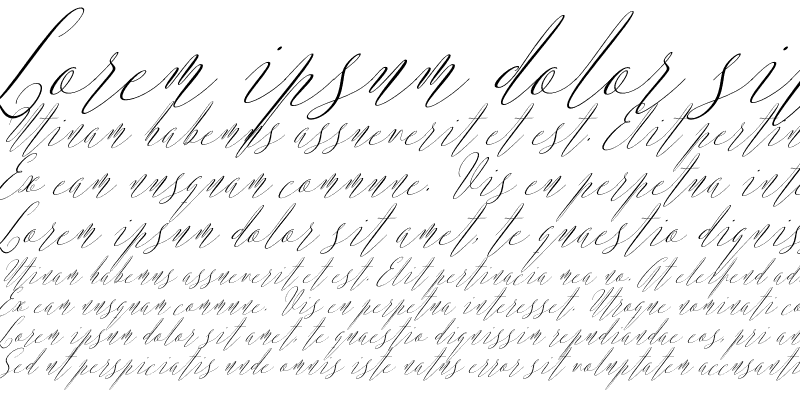 Lorem ipsum dolor si
Utinam habemus assueverit et est. Elit pertin
Ex eam nusquam commune. Vis eu perpetua inte
Lorem ipsum dolor sit amet, te quaestio dignis
Utinam habemus assueverit et est. Elit pertinacia mea no. At eleifend ad
Ex eam nusquam commune. Vis eu perpetua interesset. Utroque nominati co
Lorem ipsum dolor sit amet, te quaestio dignissim repudiandae eos, pri an
Sed ut perspiciatis unde omnis iste natus error sit voluptatem accusanti